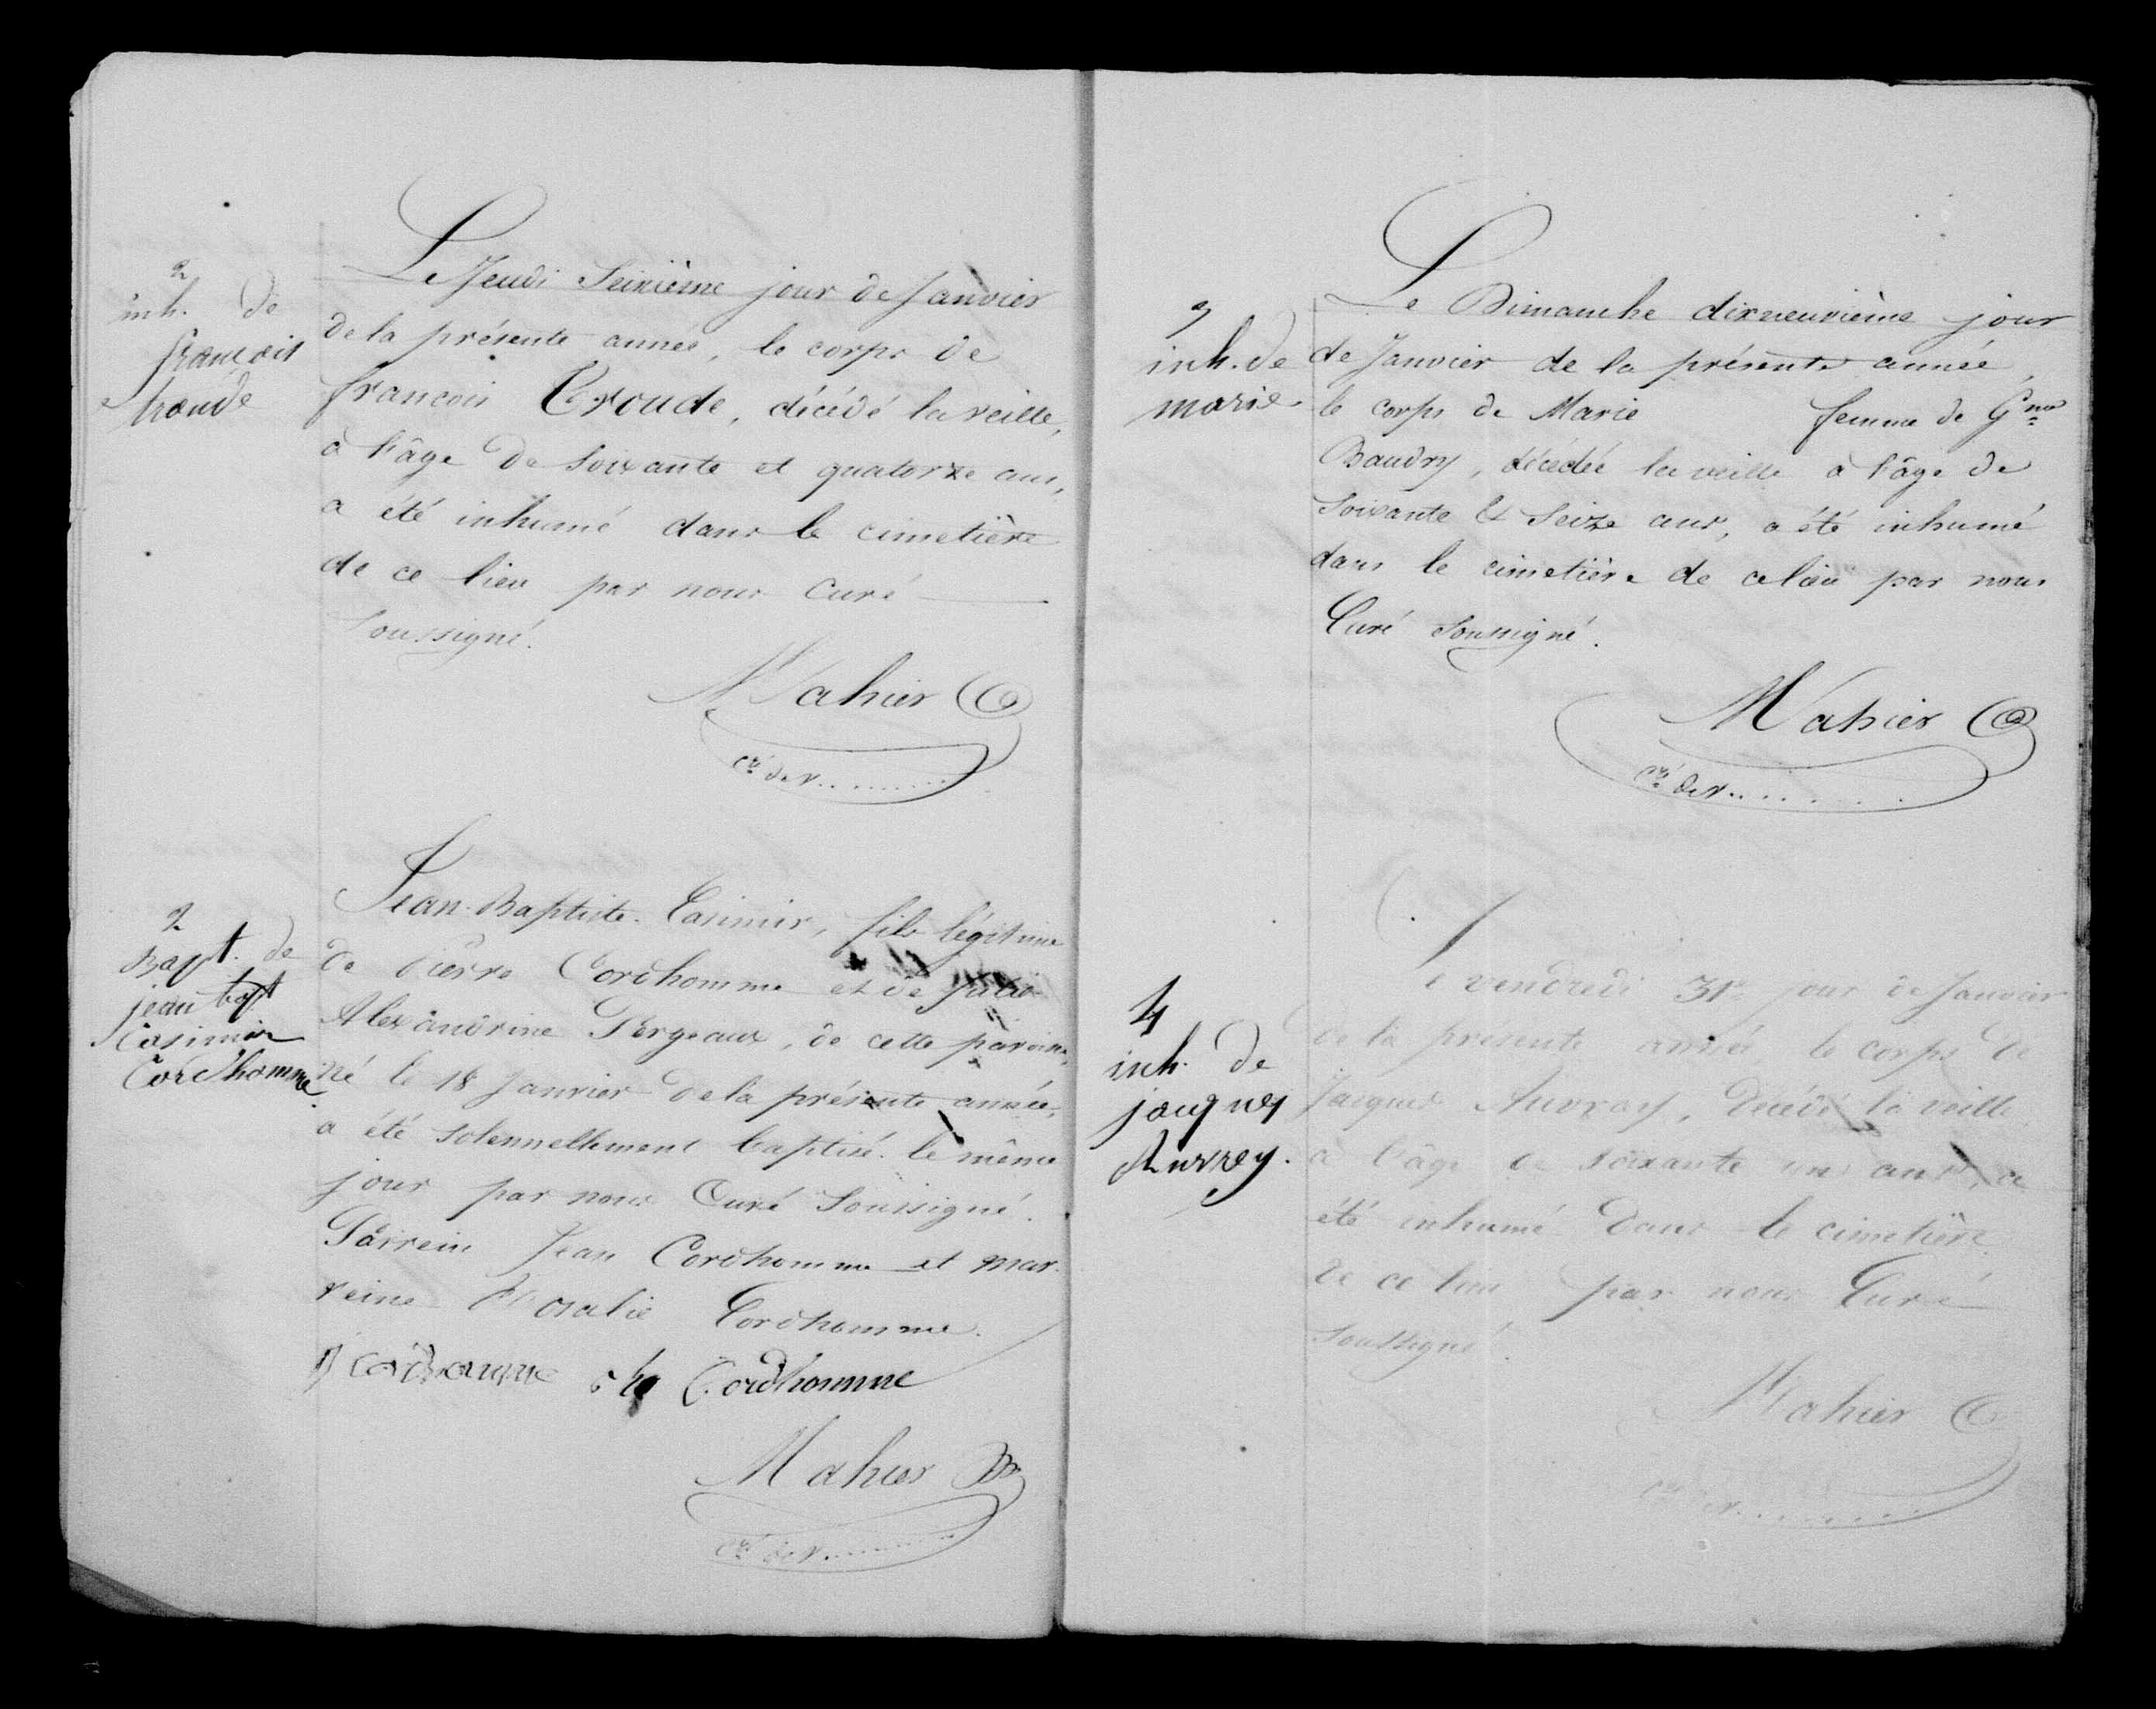 2
inh. de
françois
troude
Le Jeudi Seizième jour de Janvier
de la présente année, le corps de
françois Troude, décédé la veille,
à l'âge de soixante et quatorze ans,
a été inhumé dans le cimetière
de ce lieu par nous Curé
Soussigné.
Mahier
cé. de V..........
2
Bapt. de
jean bapt
Casimir
Cordhomme.
Jean-Baptiste-Casimir, fils légitime
de Pierre Cordhomme et de Julie
Alexandrine Pergeaux, de cette paroisse,
né le 18 Janvier de la présente année,
a été solennellement baptisé le même
jour par nous Curé Soussigné.
Parrein Jean Cordhomme et mar-
reine Rosalie Cordhomme.
J Cordhomme Cordhomme
Mahier
cé. de V..........
3
inh. de
marie
Le Dimanche dixneuvième jour
de Janvier de la présente année,
le corps de Marie femme de Gme
Baudry, décédée la veille à l'âge de
Soixante et Seize ans, a été inhumé
dans le cimetière de ce lieu par nous
Curé Soussigné.
Mahier
cé. de V..........
4
inh. de
jacques
Auvrey.
Le vendredi 31e jour de Janvier
de la présente année le corps de
Jacques Auvray, décédé la veille
à l'âge de soixante un ans, a
été inhumé dans le cimetière
de ce lieu par nous Curé
soussigné.
Mahier
cé. de V..........